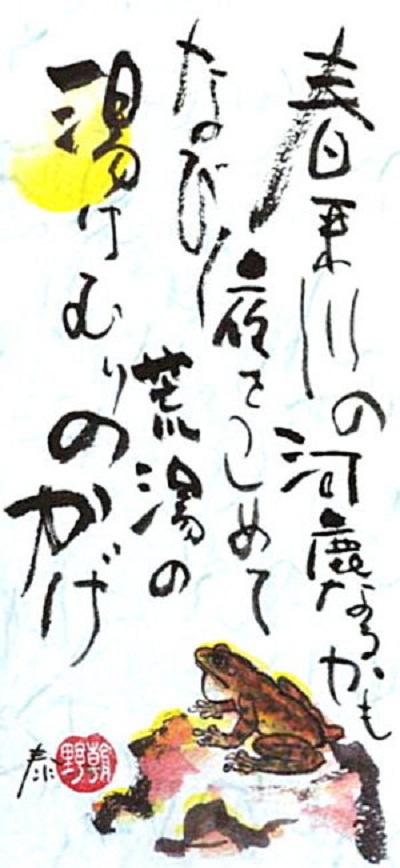 春来川の河鹿なるかも
夜をこめて
なびく荒湯の
湯けむりのかげ
泰